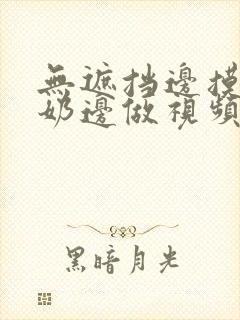 無遮挡邊摸
奶邊做視頻
黑暗月光